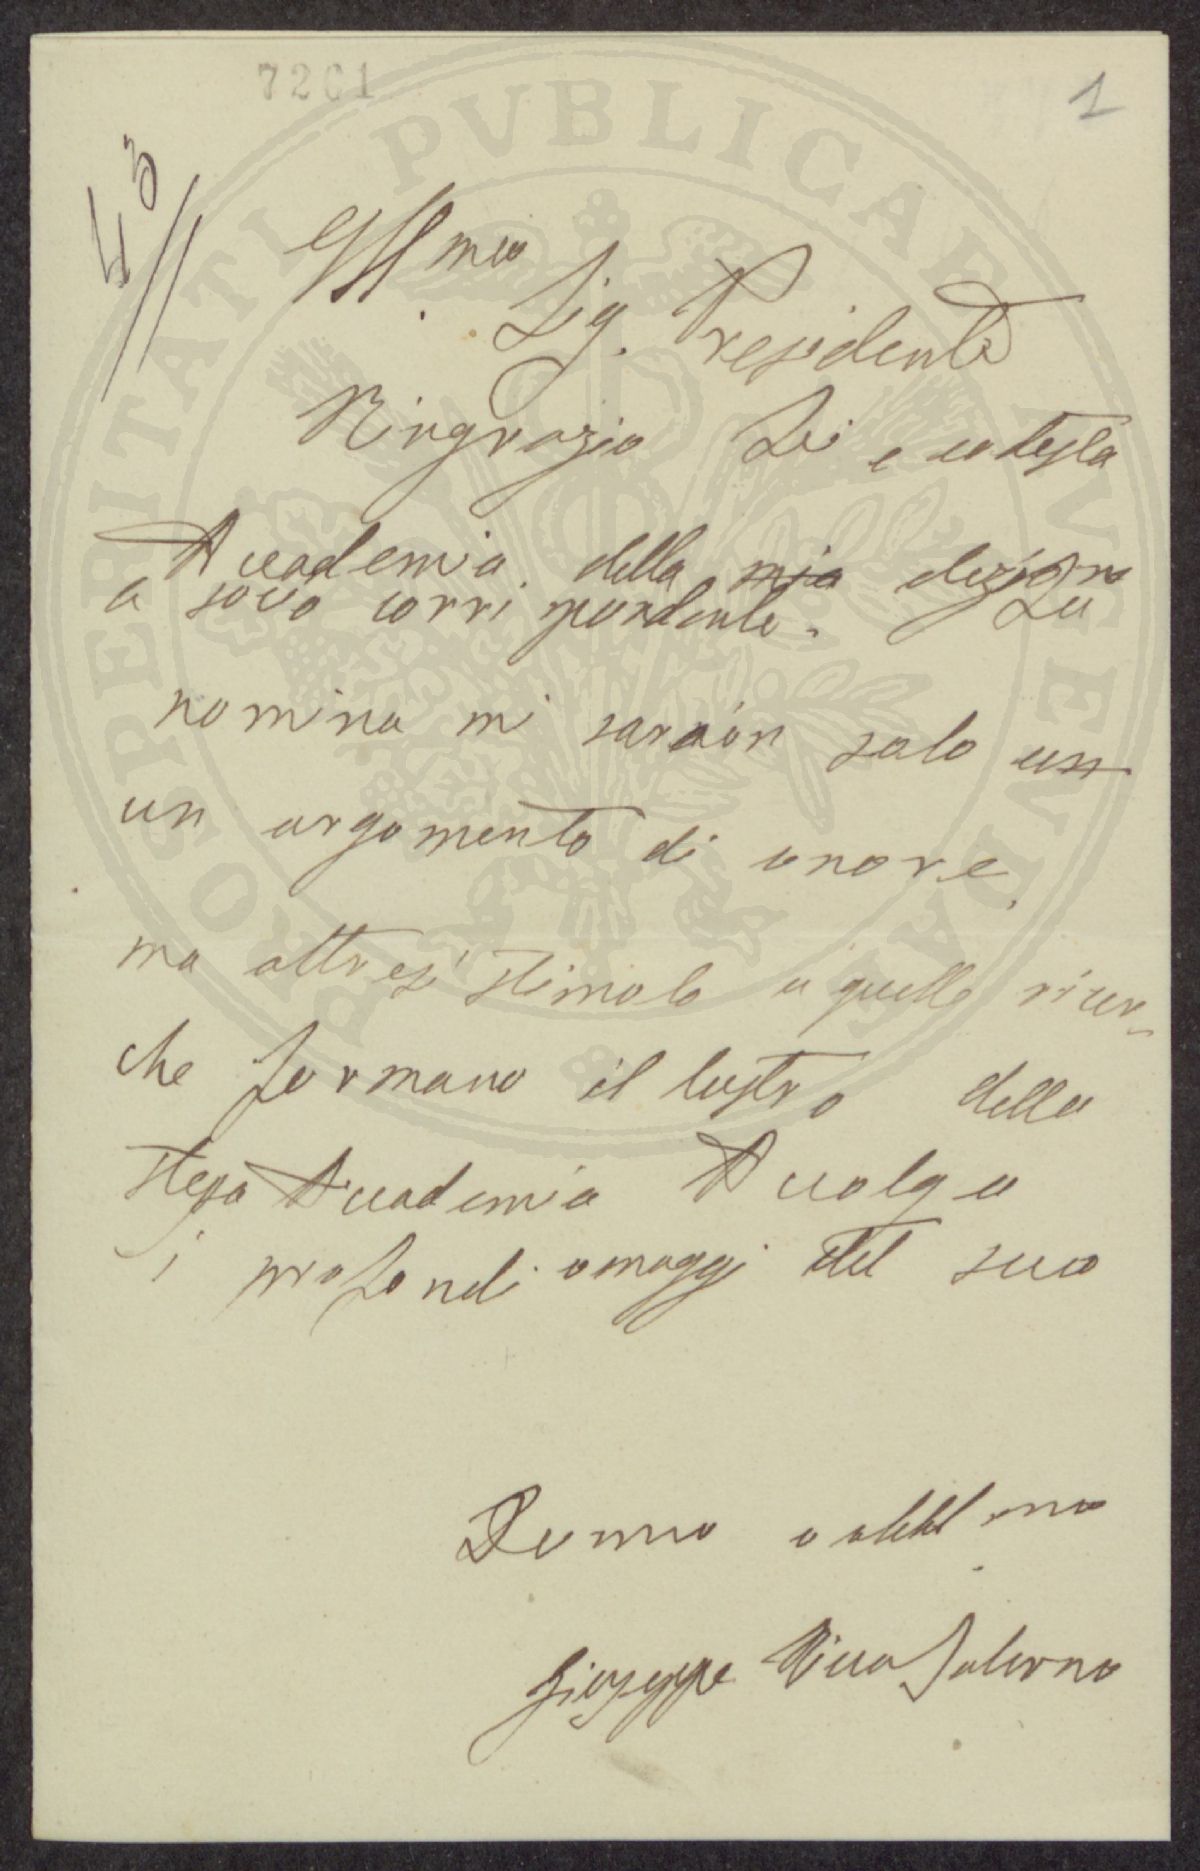 7201
1
43
Ill.mo
Sig. Presidente
Ringrazio Lei e codesta
Accademia della mia elezione
a socio corrispondente. La
nomina mi sarà non solo un
un argomento di onore,
ma altresì stimolo a quelle ricer-
che formano il lustro della
stessa Accademia Accolga
i profondi omaggi del suo
Devmo obbl.mo
Giuseppe Ricca Salerno
PROSPERITATI PVBLICAE AVGENDAE